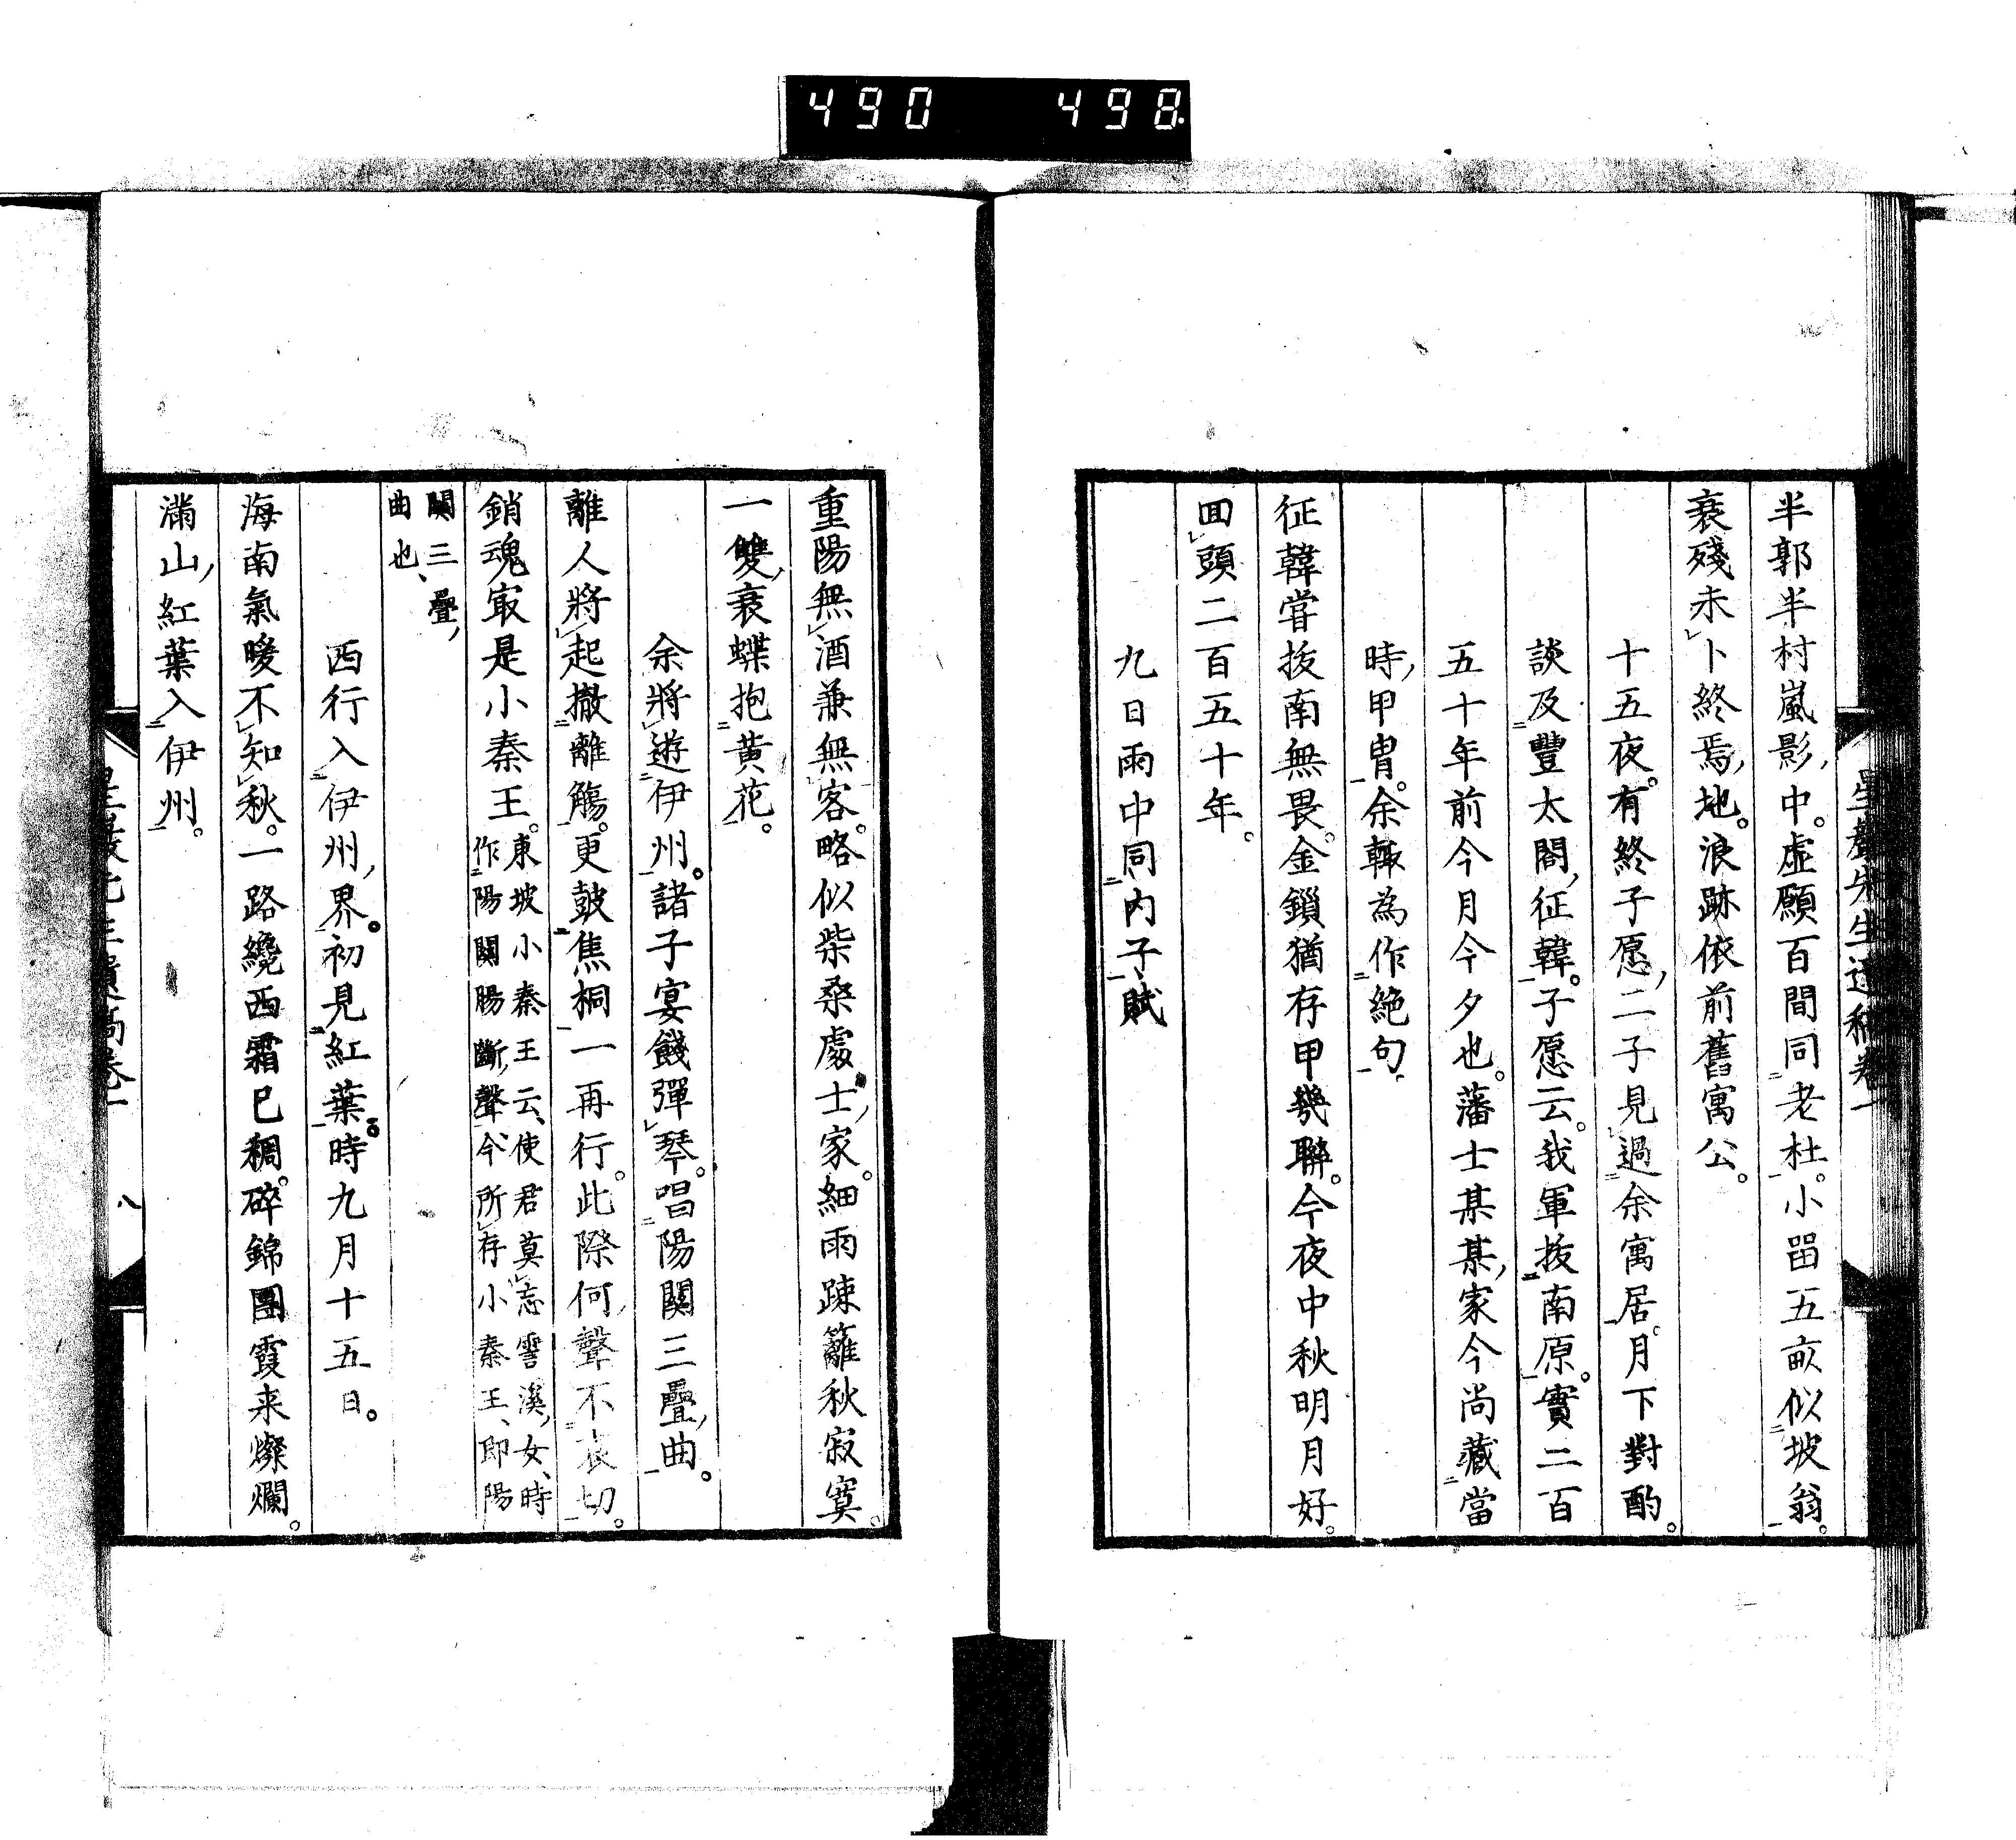 490 498
半郭半村嵐影中。虛願百間同老杜。小畱五畝似坡翁。
衰殘未卜終焉地。浪跡依前舊寓公。
十五夜。有終子愿二子見過余寓居。月下對酌。
談及豐太閤征韓。子愿云。我軍拔南原。實二百
五十年前今月今夕也。藩士某某家今尚藏當
時甲冑。余輙為作絶句
征韓嘗拔南無畏。金鎖猶存甲幾聯。今夜中秋明月好。
回頭二百五十年。
九日雨中同內子賦
重陽無酒兼無客。略似柴桑處士家。細雨踈籬秋寂寞。
一雙衰蝶抱黃花。
余將遊伊州。諸子宴餞彈琴。唱陽關三疊曲。
離人將起撤離觴。更皷焦桐一再行。此際何聲不哀切。
銷魂㝡是小秦王。東坡小秦王云、使君莫忘霅溪女、時
作陽關腸斷聲、今所存小秦王、即陽
關三疊
曲也、
西行入伊州界。初見紅葉。時九月十五日。
海南氣暖不知秋。一路纔西霜已稠。碎錦團霞来燦爛。
滿山紅葉入伊州。
星巖先生遺稿卷一
八